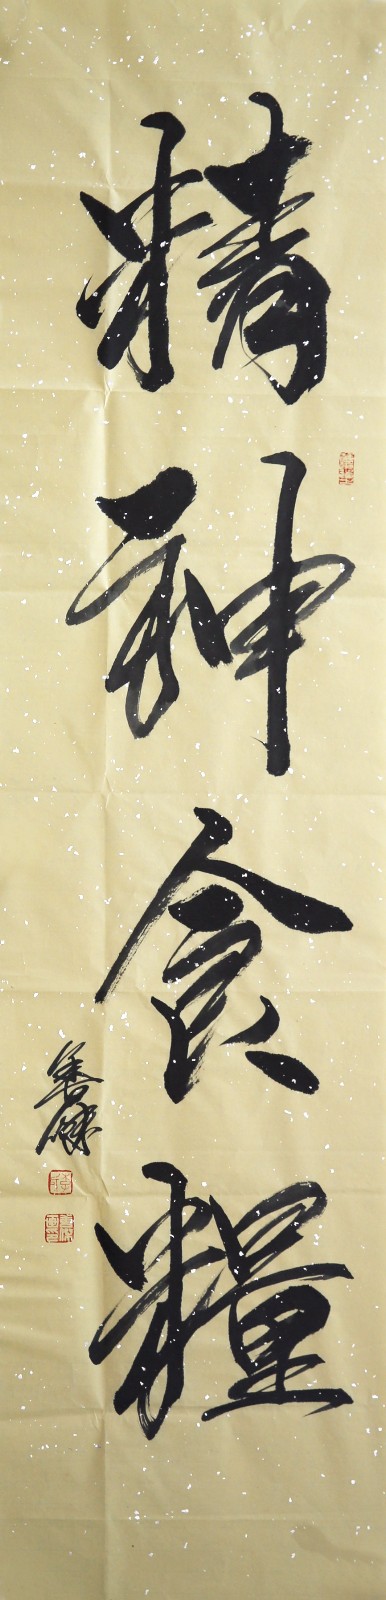 精神食糧